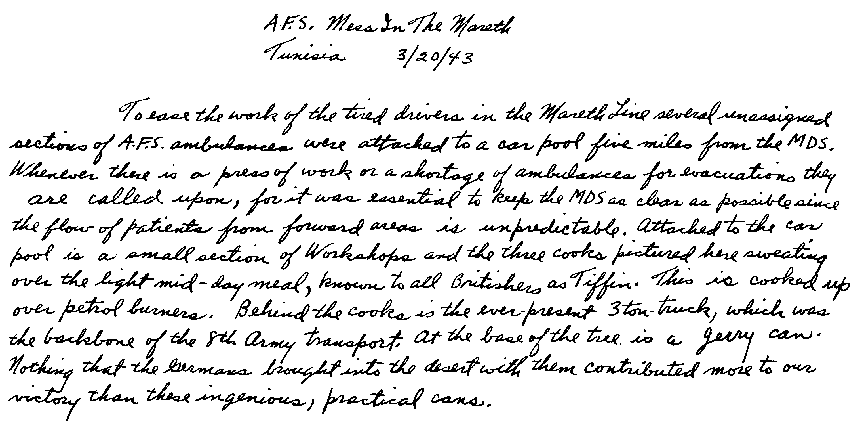 A.F.S. Mess In The Mareth
Tunisia 3/20/43
To ease the work of the tired drivers in the Mareth Line several unassigned
sections of A.F.S. ambulances were attached to a car pool five miles from the MDS.
Whenever there is a press of work or a shortage of ambulances for evacuations they
are called upon, for it was essential to keep the MDS as clear as possible since
the flow of patients from forward areas is unpredictable. Attached to the car
pool is a small section of Workshops and the three cooks pictured here sweating
over the light mid-day meal, known to all Britishers as Tiffin. This is cooked up
over petrol burners. Behind the cooks is the ever present 3 ton-truck, which was
the backbone of the 8th Army transport. At the base of the tree is a gerry can.
Nothing that the Germans brought into the desert with them contributed more to our
victory than these ingenious, practical cans.